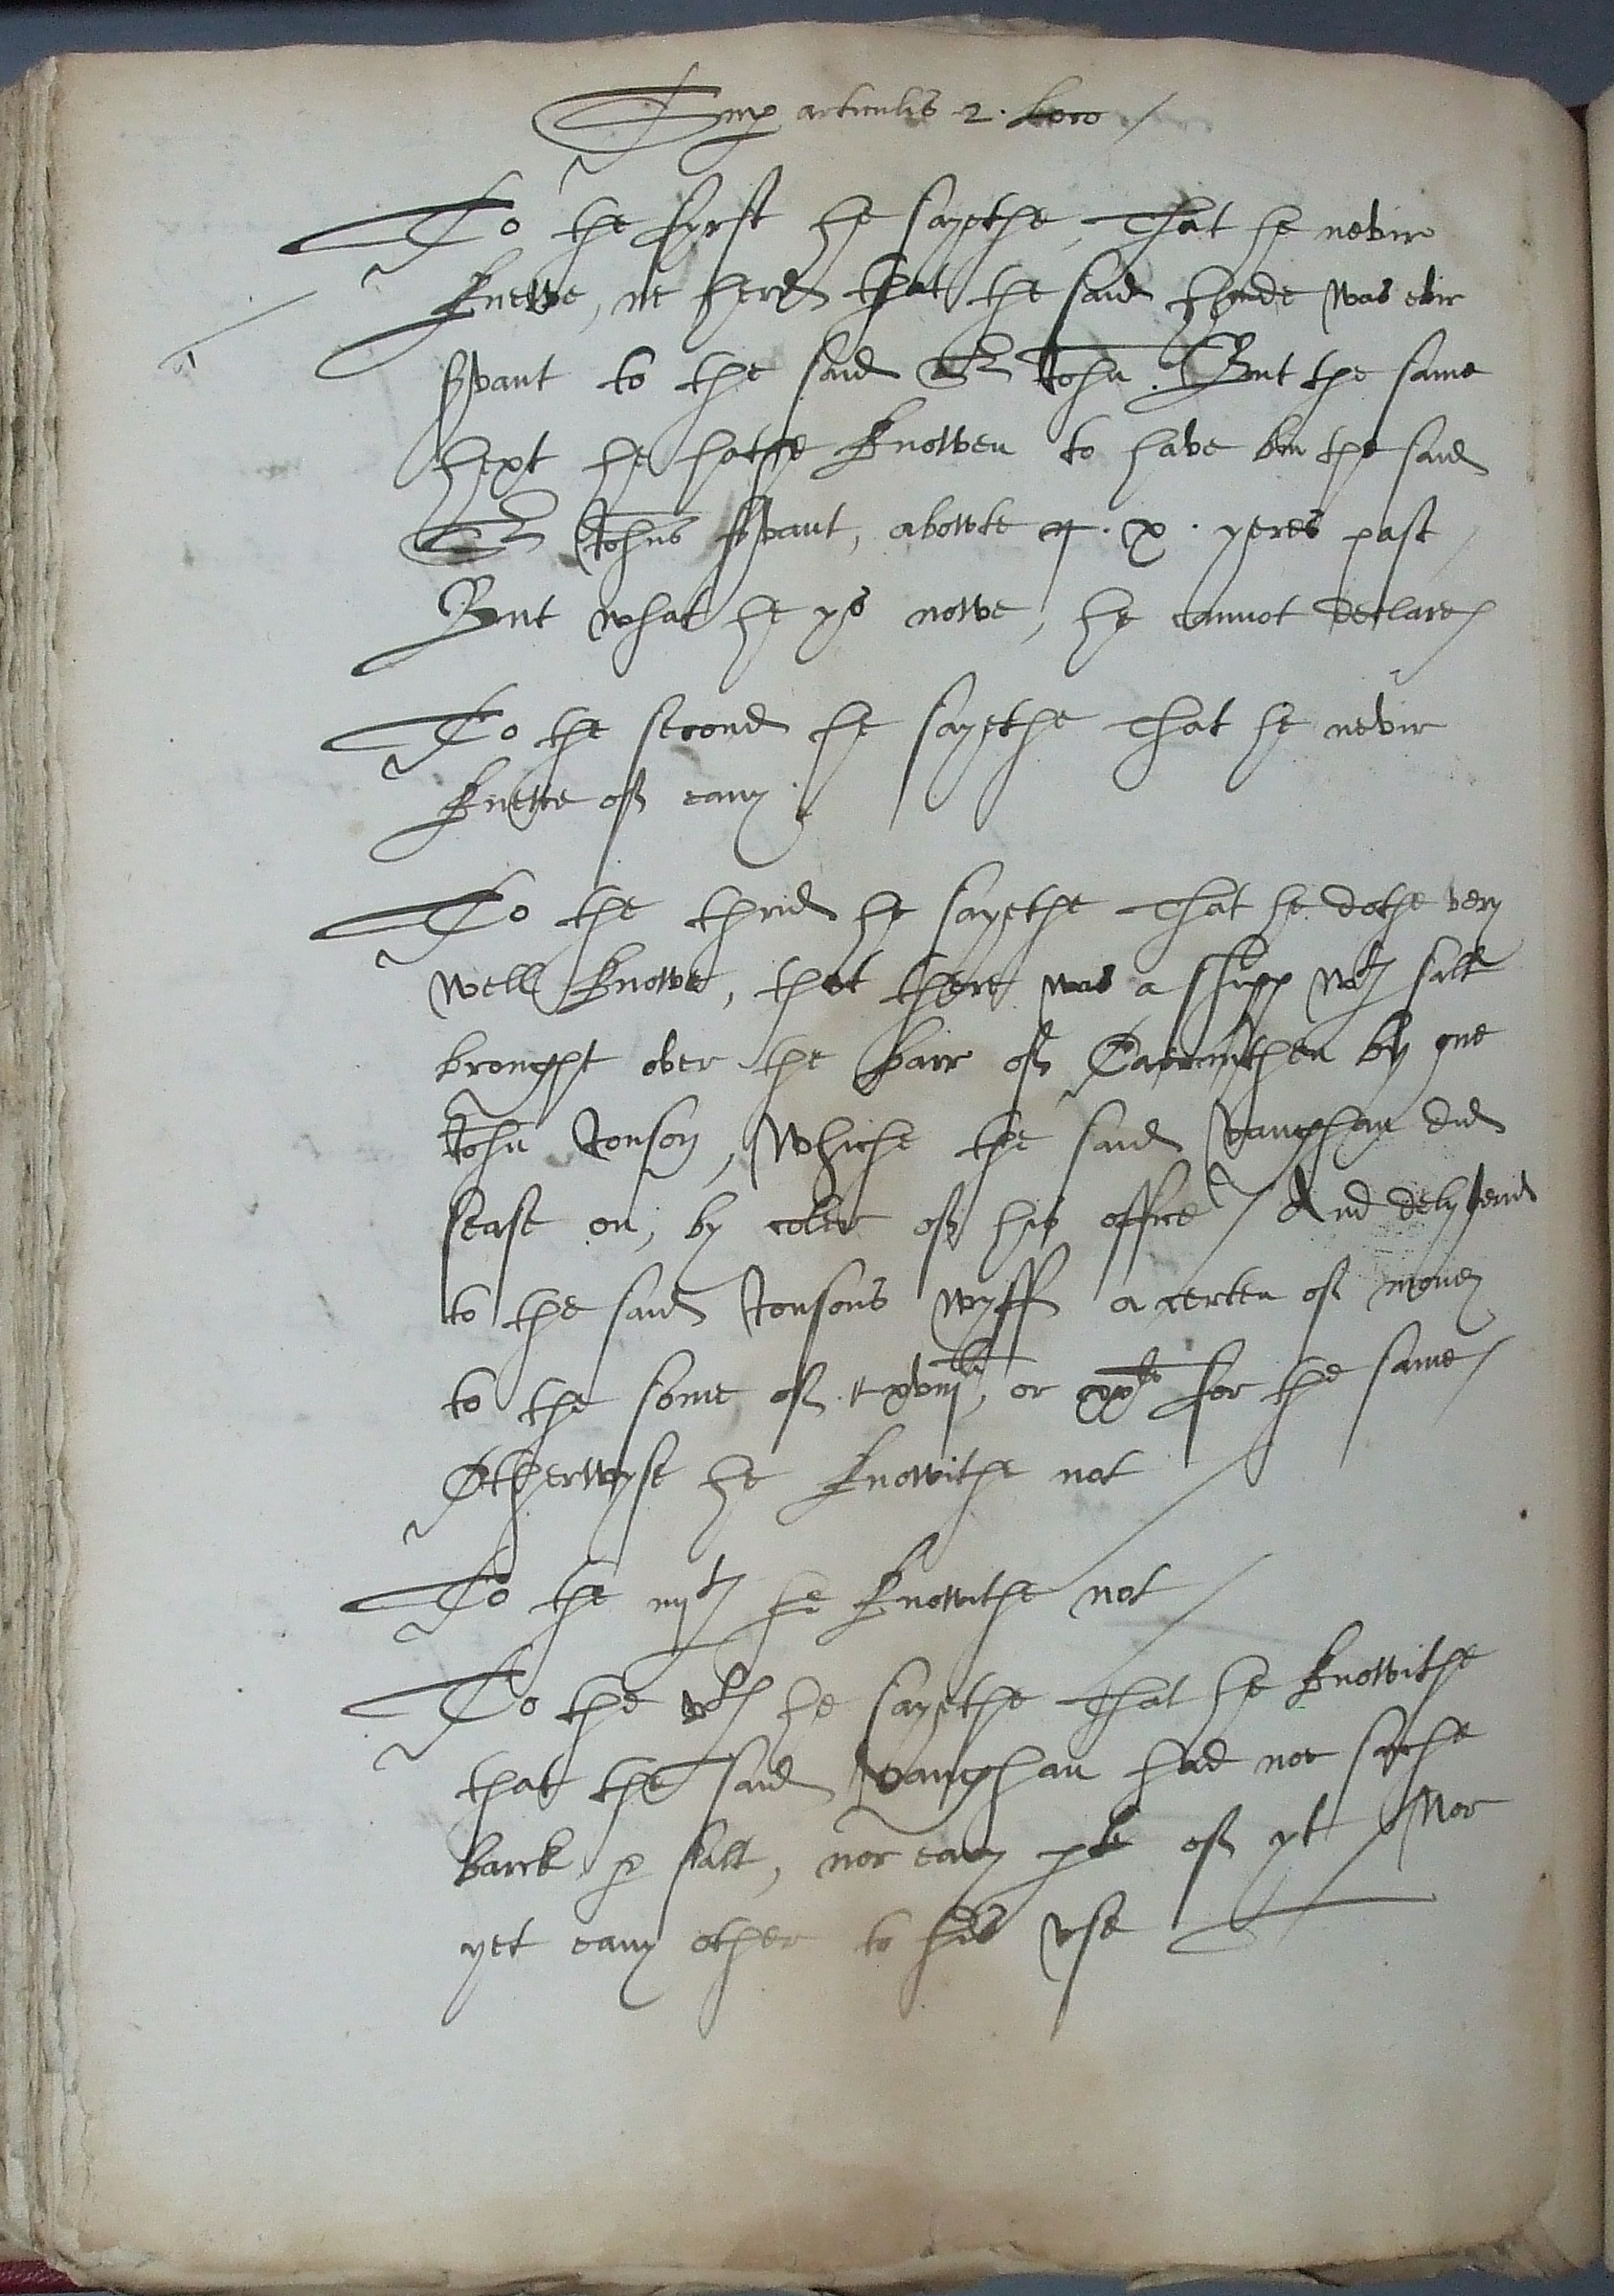 Sup articulis 2. Loco
To the fyrst he sayethe, That he nevir
knewe, ne herd that the said hynde was evir
svant to the said Sr John. But the same
hext he hathe knowen to have bin the said
Sr Johns svant, abowte x. yeres past
But what he ys nowe, he cannot declare
To the second he sayethe That he nevir
knewe of eany.
To the thrid he sayethe That he dothe very
well knowe, that there was a shipp wth salt
brought over the barr of Carmerthen by one
John Jonson, Whiche the said vaughan did
sease on, by coler of his office / And delyverid
to the said Jonsons wyff a certen of money
to the some of xviijli, or xxli for the same
Otherwyse he knowithe not
To the iiijth he knowithe not
To the vth he sayethe That he knowithe
that the said vaughan had not suche
barck salt, nor eany pte of yt / Nor
yet eany other to his vse